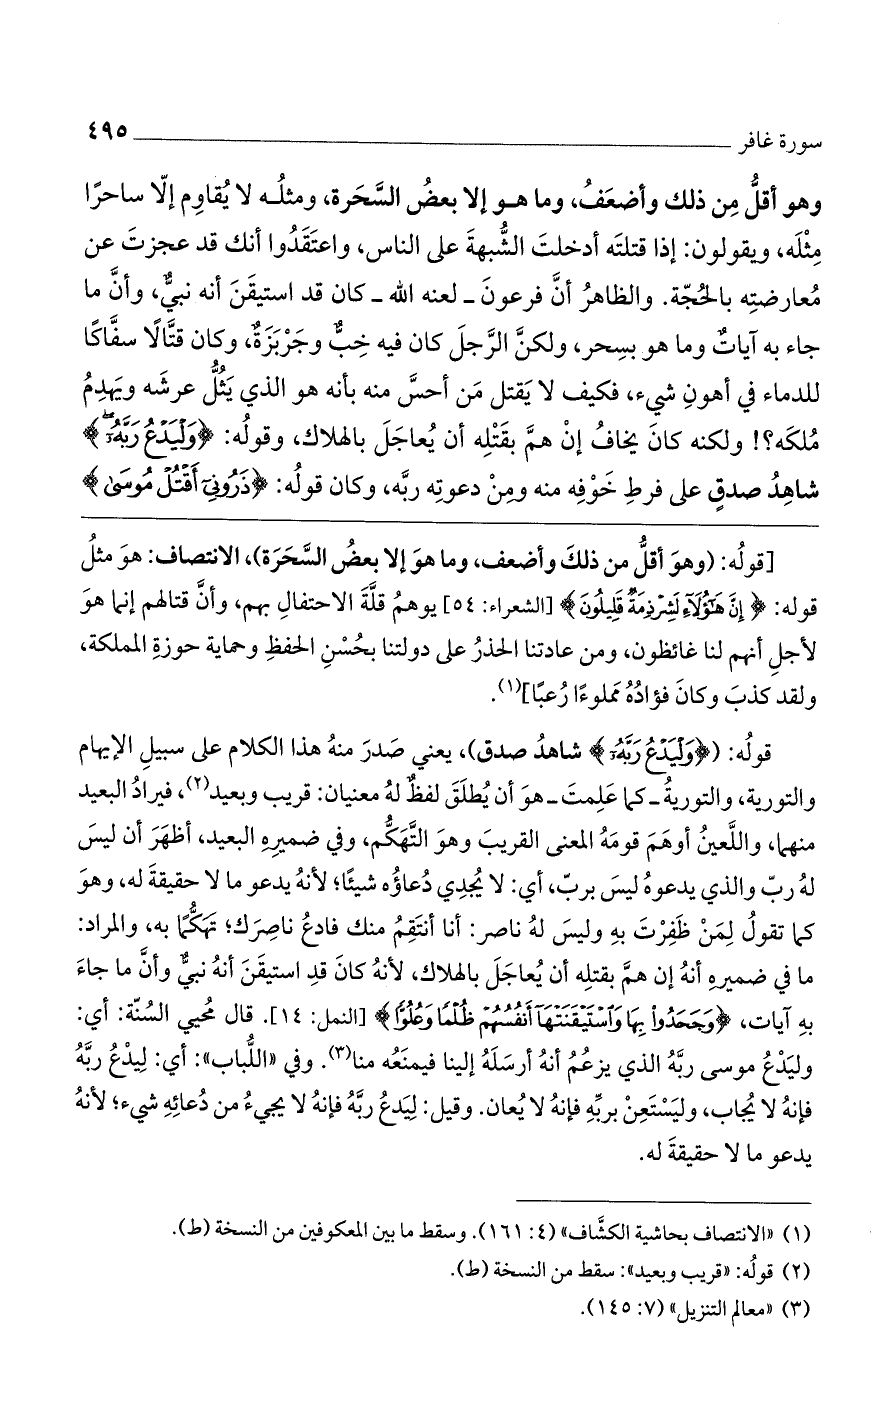 سورة غافر ــــــــــ ٤٩٥
وهو أقلُّ مِن ذلك وأضعَفُ، وما هـو إلا بعضُ السَّحَرة، ومثلُـه لا يُقاوِم إلّا ساحرًا
مِثْلَه، ويقولون: إذا قتلتَه أدخلتَ الشُّبهةَ على الناس، واعتَقَدُوا أنك قد عجزتَ عن
مُعارضتِه بالحُجّة. والظاهرُ أنَّ فرعونَ ـ لعنه الله ـ كان قد استيقَنَ أنه نبيٌّ، وأنَّ ما
جاء به آياتٌ وما هو بسِحر، ولكنَّ الرَّجلَ كان فيه خِبٌّ وجَرْبَزَةٌ، وكان قتَّالًا سفَّاكًا
للدماء في أهونِ شيء، فكيف لا يَقتل مَن أحسَّ منه بأنه هو الذي يَثُلُّ عرشَه ويَهدِمُ
مُلكَه؟! ولكنه كانَ يخافُ إنْ همَّ بقَتْلِه أن يُعاجَلَ بالهلاك، وقولُه: ﴿وَلْيَدْعُ رَبَّهُۥٓ﴾
شاهِدُ صدقٍ على فرطِ خَوْفِه منه ومِنْ دعوتِه ربَّه، وكان قولُه: ﴿ذَرُونِيٓ أَقْتُلْ مُوسَىٰ﴾
[قولُه: (وهوَ أقلُّ من ذلكَ وأضعف، وما هوَ إلا بعضُ السَّحَرَة)، الانتصاف: هوَ مثلُ
قوله: ﴿إِنَّ هَٰٓؤُلَآءِ لَشِرْذِمَةٌ قَلِيلُونَ﴾ [الشعراء: ٥٤] يوهمُ قلَّةَ الاحتفالِ بهم، وأنَّ قتالهم إنما هوَ
لأجلِ أنهم لنا غائظون، ومن عادتنا الحذرُ على دولتنا بحُسْنِ الحفظِ وحماية حوزةِ المملكة،
ولقد كذبَ وكانَ فؤادُهُ مملوءًا رُعبًا](١).
قولُه: (﴿وَلْيَدْعُ رَبَّهُۥٓ﴾ شاهدُ صدق)، يعني صَدرَ منهُ هذا الكلام على سبيلِ الإيهام
والتورية، والتوريةُ ـ كما عَلِمتَ ـ هوَ أن يُطلَقَ لفظٌ لهُ معنيان: قريب وبعيد(٢)، فيرادُ البعيد
منهما، واللَّعينُ أوهَمَ قومَهُ المعنى القريبَ وهوَ التَّهَكُّم، وفي ضميرِهِ البعيد، أظهَرَ أن ليسَ
لهُ ربّ والذي يدعوهُ ليسَ بربّ، أي: لا يُجْدِي دُعاؤُه شيئًا؛ لأنهُ يدعو ما لا حقيقةَ له، وهوَ
كما تقولُ لِمَنْ ظَفِرْتَ بِهِ وليسَ لهُ ناصر: أنا أنتَقِمُ منك فادعُ ناصِرَك؛ تهكُّمًا به، والمراد:
ما في ضميرِهِ أنهُ إن همَّ بقتلِهِ أن يُعاجَلَ بالهلاك، لأنهُ كانَ قدِ استيقَنَ أنهُ نبيٌّ وأنَّ ما جاءَ
بهِ آيات، ﴿وَجَحَدُوا۟ بِهَا وَٱسْتَيْقَنَتْهَآ أَنفُسُهُمْ ظُلْمًا وَعُلُوًّا﴾ [النمل: ١٤]. قال مُحيي السُنّة: أي:
وليَدْعُ موسى ربَّهُ الذي يزعُمُ أنهُ أرسَلَهُ إلينا فيمنَعُه منا(٣). وفي «اللُّباب»: أي: لِيدْعُ ربَّهُ
فإنهُ لا يُجاب، وليَسْتَعِنْ بربِّهِ فإنهُ لا يُعان. وقيل: لِيَدعُ ربَّهُ فإنهُ لا يجيءُ من دُعائِهِ شيء؛ لأنهُ
يدعو ما لا حقيقةَ له.
(١) «الانتصاف بحاشية الكشَّاف» (٤: ١٦١). وسقط ما بين المعكوفين من النسخة (ط).
(٢) قولُه: «قريب وبعيد»: سقط من النسخة (ط).
(٣) «معالم التنزيل» (٧: ١٤٥).